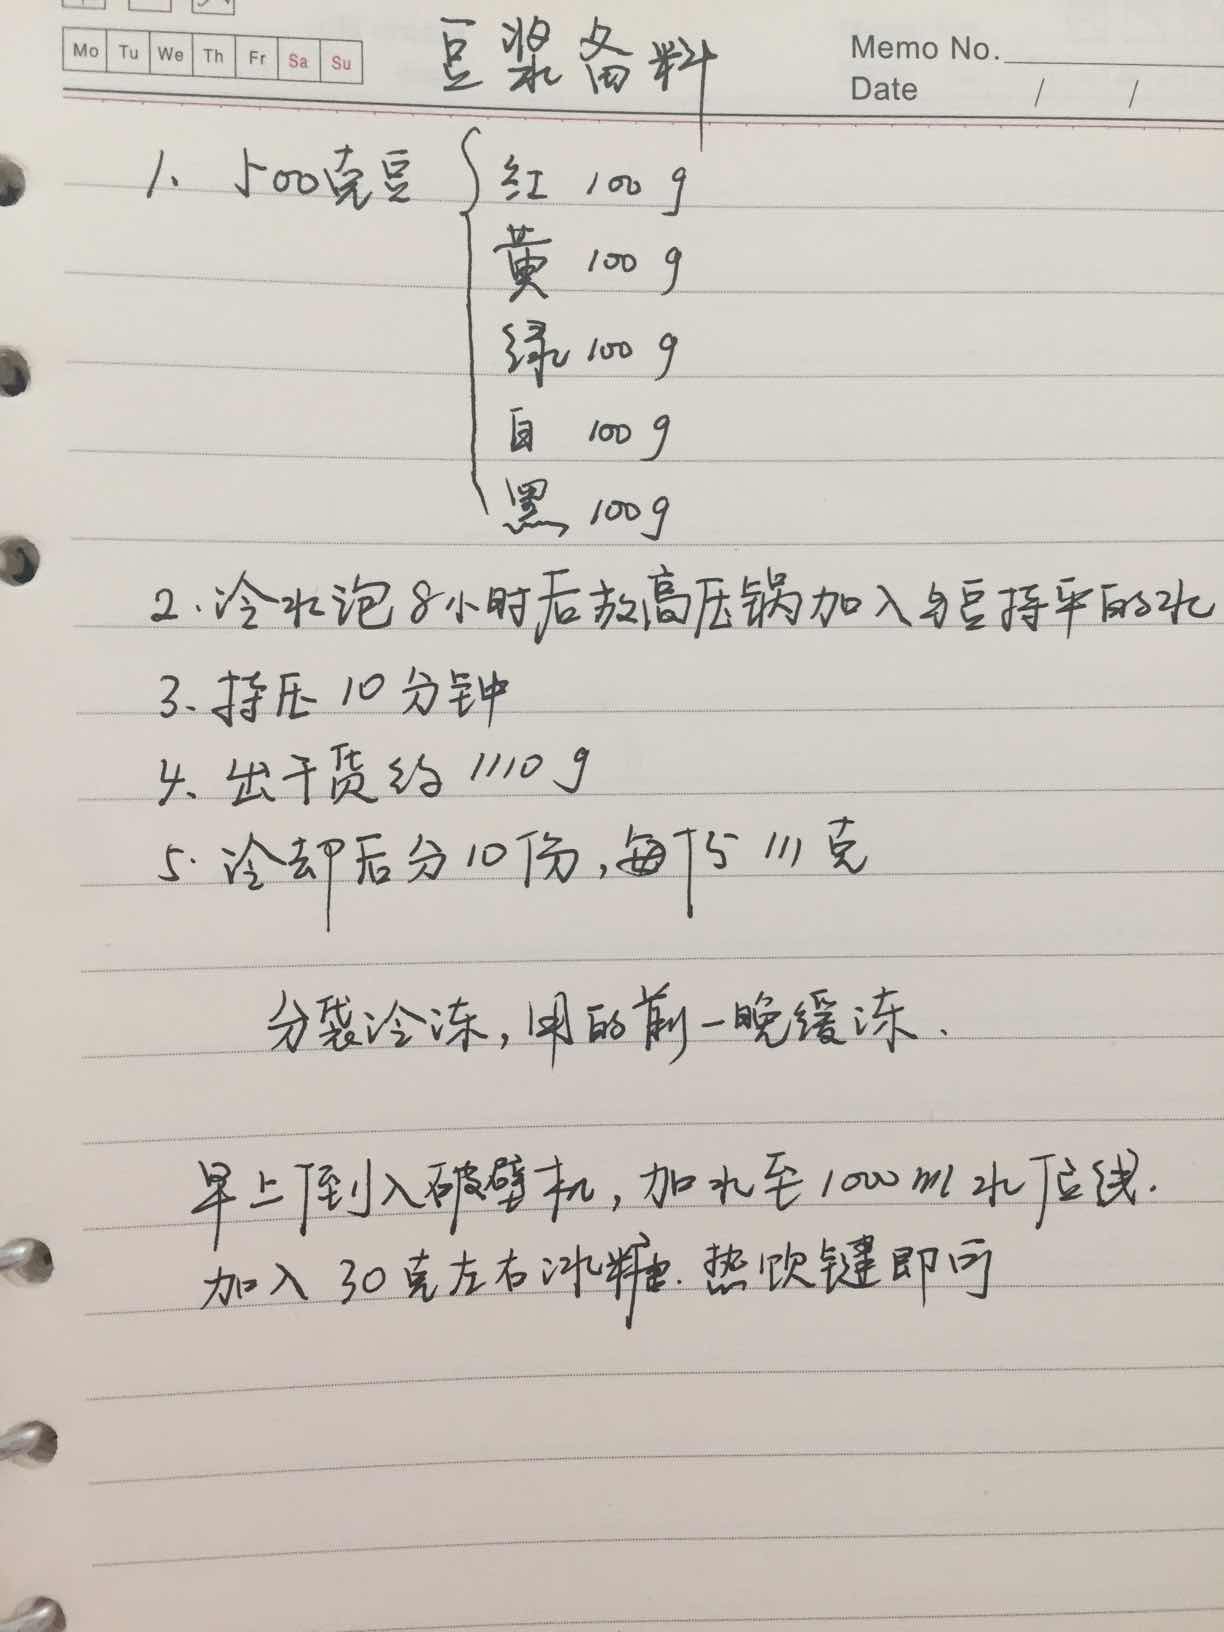 Mo Tu We Th Fr Sa Su
豆浆备料
Memo No.
Date / /
1、500克豆 { 红 100g
黄 100g
绿 100g
白 100g
黑 100g
2.冷水泡8小时后放高压锅加入与豆持平的水
3、持压10分钟
4、出干货约1110g
5.冷却后分10份,每份111克
分袋冷冻,用的前一晚缓冻.
早上倒入破壁机,加水至1000ml水位线.
加入30克左右冰糖.热饮键即可